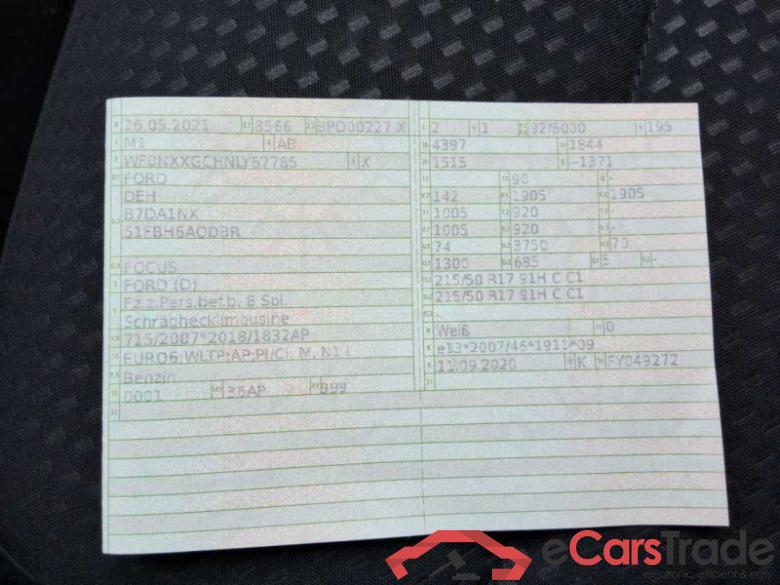 B 26.05.2021 2.1 8566 2.2 BPD00227 X
J M1 4 AB
E WF0NXXGCHNLY67785 3 X
D.1 FORD
DEH
D.2 B7DA1NX
51FBH6AODBR
D.3 FOCUS
2 FORD (D)
5 Fz.z.Pers.bef.b. 8 Spl.
Schräghecklimousine
V.9 715/2007*2018/1832AP
14 EURO6;WLTP;AP;PI/CI; M, N1 I
P.3 Benzin
10 0001 14.1 36AP P.1 999
22
L 2 9 1 92/6000 T 195
18 4397 19 1844
20 1515 G -1371
12 13 90 Q -
V.7 142 F.1 1905 F.2 1905
7.1 1005 7.2 920 7.3 -
8.1 1005 8.2 920 8.3 -
U.1 74 U.2 3750 U.3 70
O.1 1300 O.2 685 S.1 5 S.2 -
15.1 215/50 R17 91H C C1
15.2 215/50 R17 91H C C1
15.3 -
R Weiß 11 0
K e13*2007/46*1911*09
6 11.09.2020 17 K 16 FY049272
21
eCarsTrade
electronic, efficient & easy